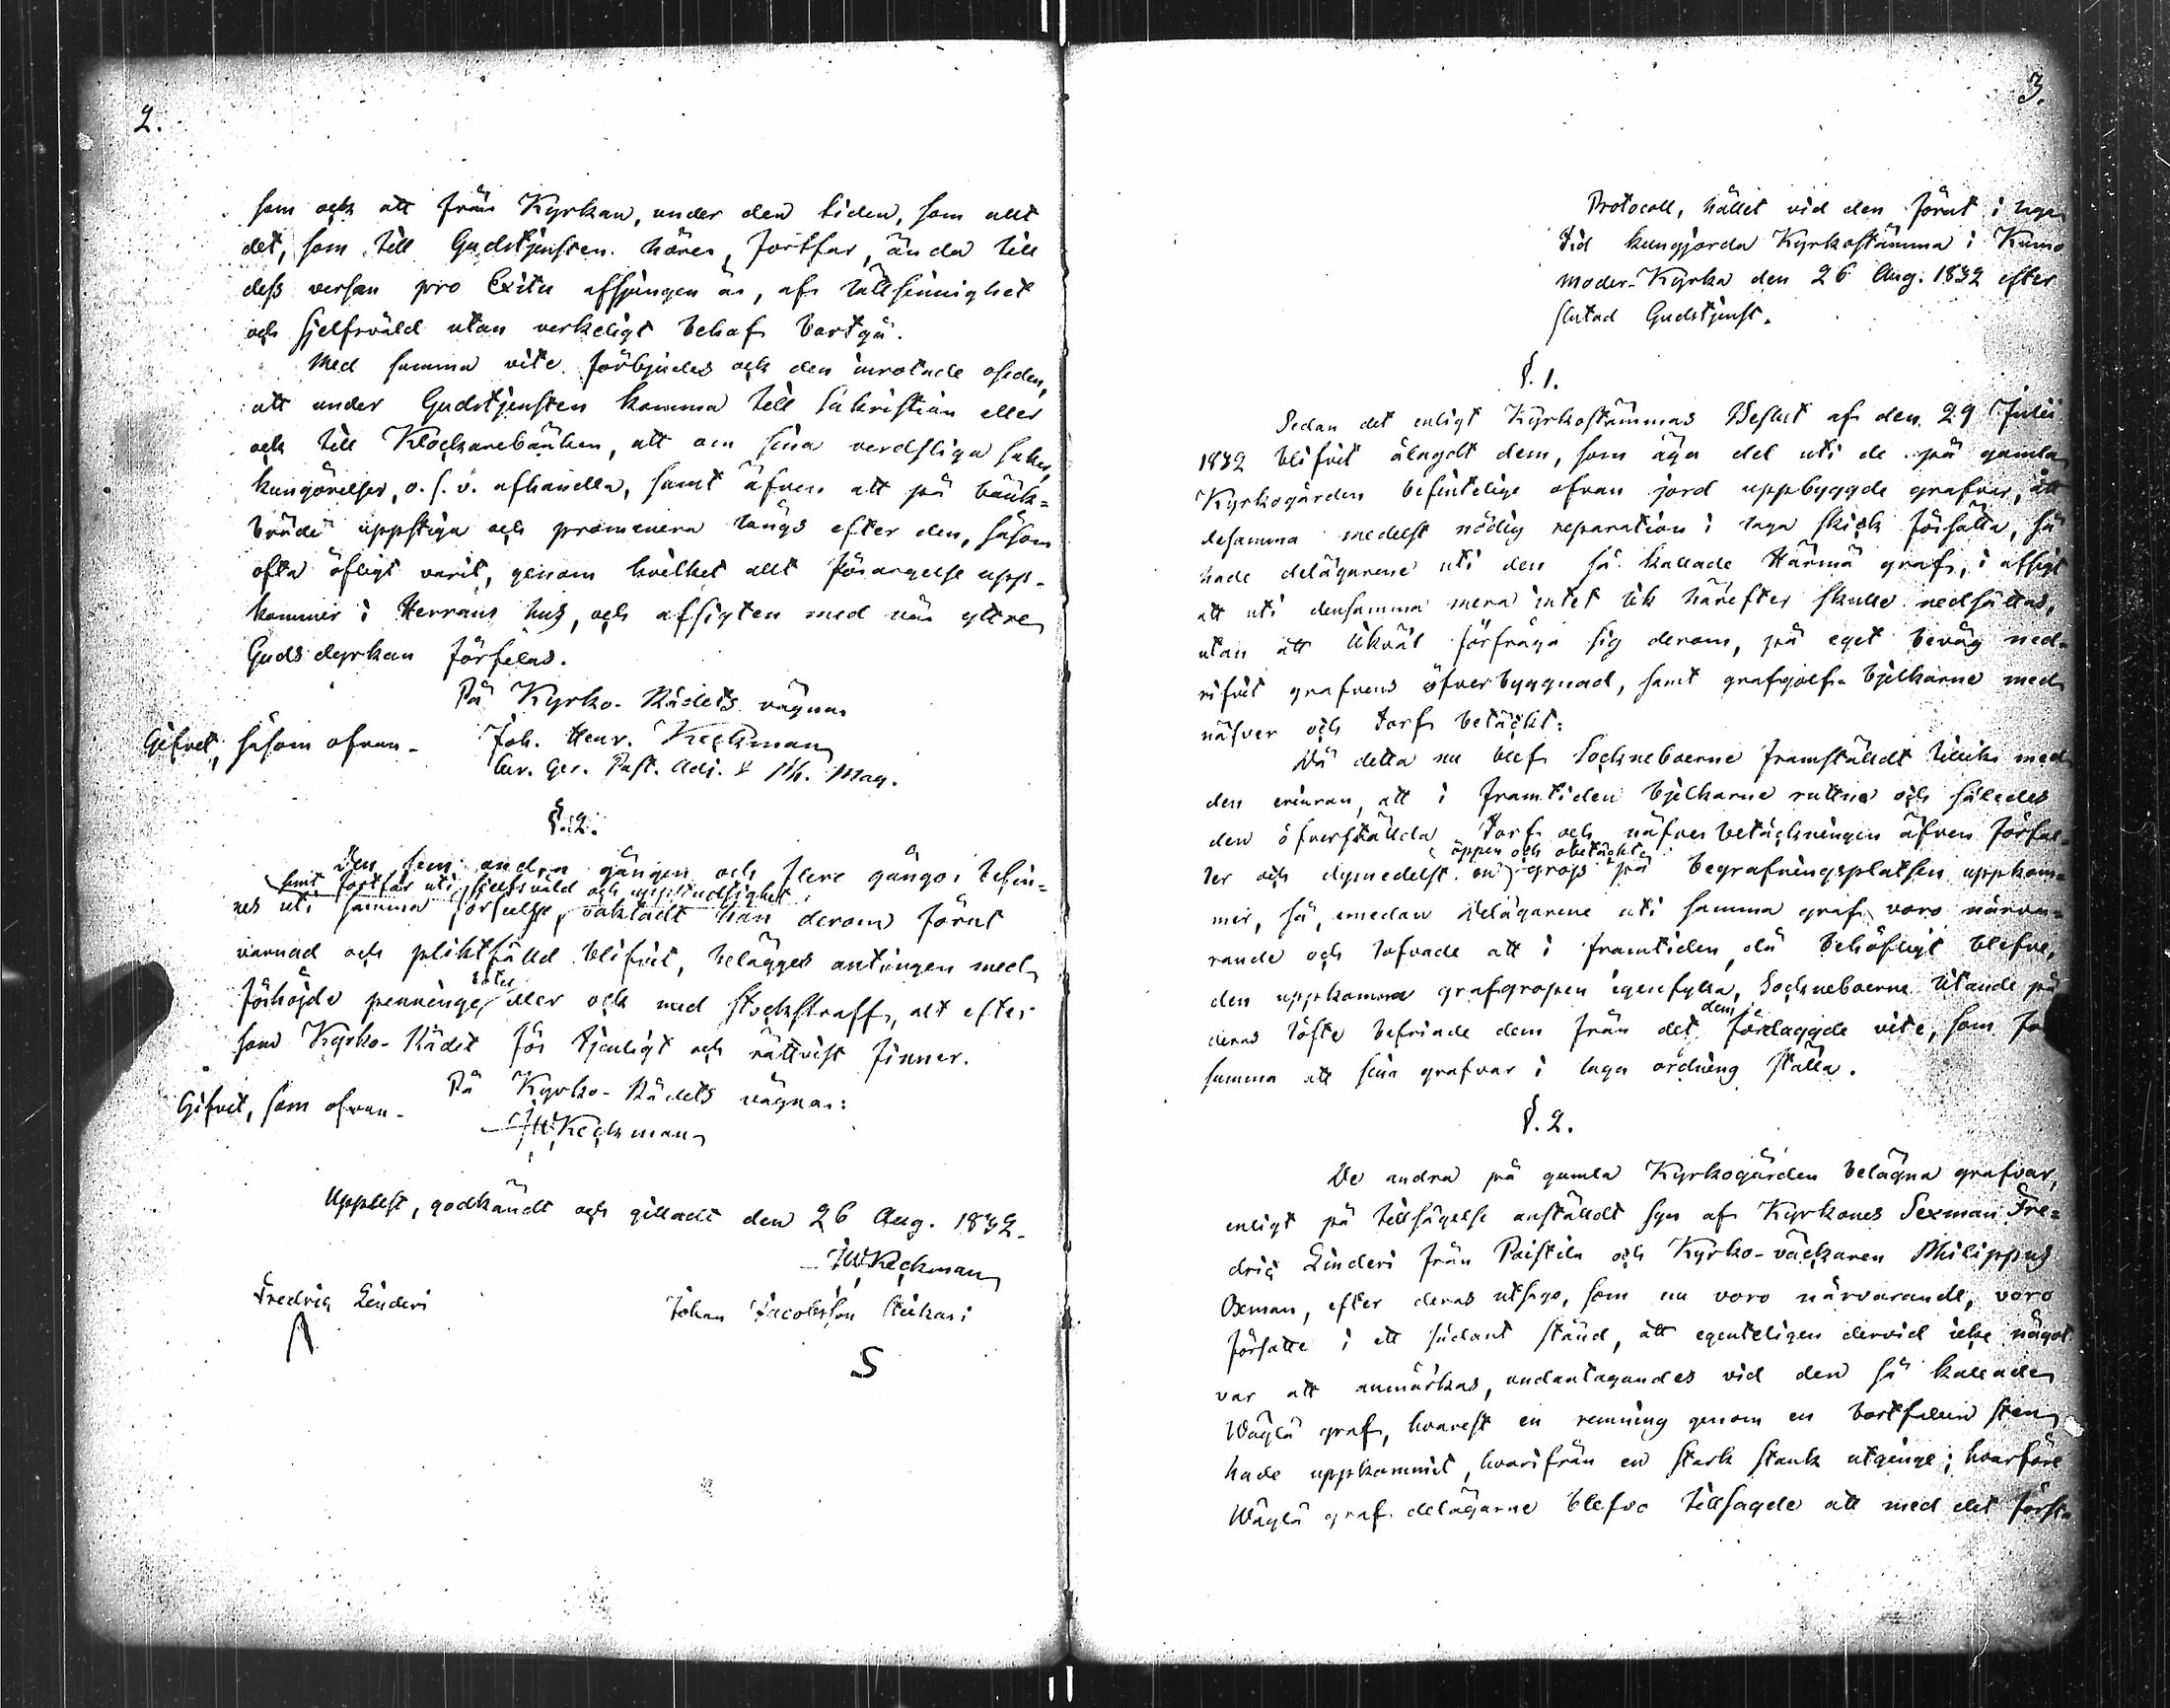 2.
som ock att från Kyrkan, under den tiden, som allt
det, som till Gudstjensten hörer, fortfar, ända till
dess versen pro Exitu afsjungen är, af lättsinnighet
och sjelfsvåld utan verkeligt behof bortgå.
Med samma vite förbjudes ock den inrotade oseden,
att under Gudstjensten komma till Sakristian eller
ock till Klockarebänken, att om sina verdsliga saker,
kungörelser, o. s. v. afhandla, samt äfven att på bänk=
bräde uppstiga och promenera längs efter den, såsom
ofta öfligt varit, genom hvilket allt förargelse upp-
kommer i Herrans hus, och afsigten med vår yttre
Gudsdyrkan förfelas.
På Kyrko-Rådets vägnar
Gifvet, såsom ofvan- Joh. Henr. Keckman
Cur. Ger. Past. Adj. & Ph. Mag.
§. 2.
Den, som andra gången och flere gångor befin=
samt fortfar uti sjelfsvåld och uppstudsighet
nes uti samma förseelse, oaktadt han derom förut
varnad och pliktfälld blifvit, belägges antingen med
böter
förhöjde penninge eller ock med stockstraff, alt efter
som Kyrko-Rådet för tjenligt och rättvist finner.
Gifvet, som ofvan- På Kyrko-Rådets vägnar:
JHKeckman
Uppläst, godkändt och gilladt den 26 Aug. 1832.
JHKeckman
Fredric Linderi Johan Jacobsson
S
3.
Protocoll, hållet vid den förut i laga
tid kungjorda Kyrkostämma i Kumo
Moder-Kyrka den 26 Aug. 1832 efter
slutad Gudstjenst.
§. 1.
Sedan det enligt Kyrkostämmas Beslut af den 29 Julii
1832 blifvit ålagdt dem, som äga del uti de på gamla
Kyrkogården befintelige ofvan jord uppbyggde grafvar, att
desamma medelst nödig reparation i laga skick försätta, så
hade delägarene uti den så kallade Härmä graf, i afsigt
att uti densamma mera intet lik härefter skulle nedsättas,
utan att likväl förfråga sig derom, på eget bevåg ned-
rifvit grafvens öfverbyggnad, samt grafgolfs bjelkarne med
näfver och torf betäckt:
Då detta nu blef Sockneboerne framställdt tillika med
den erinran, att i framtiden bjelkarne ruttna och således
den öfverställda torf och näfver betäckningen äfven förfal-
öppen och obetäckt
ler och dymedelst en grop på begrafningsplatsen uppkom-
mer, så, emedan delägarene uti samma graf voro närva-
rande och lofvade att i framtiden, då behöfligt blefve,
den uppkomna grafgropen igenfylla, Sockneboerne litande på
dem
deras löfte befriade dem från det förelaggde vite, som
samma att sina grafvar i laga ordning ställa.
§. 2.
De andra på gamla Kyrkogården belägna grafvar,
enligt på tillsägelse anställdt syn af Kyrkones Sexman Fre=
dric Linderi från Paistila och Kyrko-väckaren Philippus
Oxman, efter deras utsago, som nu voro närvarande, voro
försatte i ett sådant stånd, att egenteligen dervid icke något
var att anmärkas, undantagandes vid den så kallade
Wäylä graf, hvarest en remning genom en bortfallen sten
hade uppkommit, hvarifrån en stark stank utginge; hvarföre
Wäylä graf delägarne blefvo tillsagde att med det först-